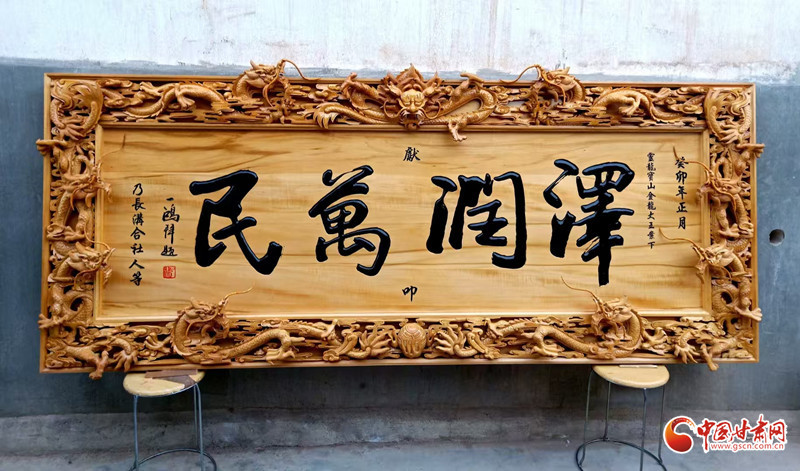 癸卯年正月
靈龍寶山金龍大王案下
澤潤萬民
獻
叩
一鸿偉題
乃長溝合社人等
中国甘肃网
www.gscn.com.cn